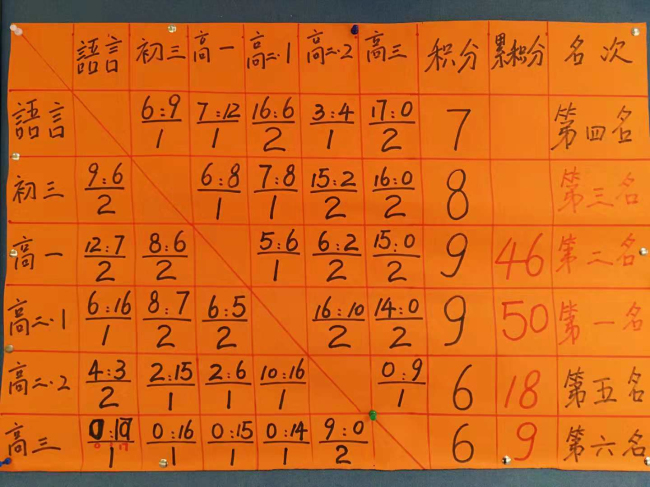 語言 初三 高一 高二·1 高二·2 高三 积分 累积分 名次
語言 6:9/1 7:12/1 16:6/2 3:4/1 17:0/2 7 第四名
初三 9:6/2 6:8/1 7:8/1 15:2/2 16:0/2 8 第三名
高一 12:7/2 8:6/2 5:6/1 6:2/2 15:0/2 9 46 第二名
高二·1 6:16/1 8:7/2 6:5/2 16:10/2 14:0/2 9 50 第一名
高二·2 4:3/2 2:15/1 2:6/1 10:16/1 0:9/1 6 18 第五名
高三 /1 0:16/1 0:15/1 0:14/1 9:0/2 6 9 第六名